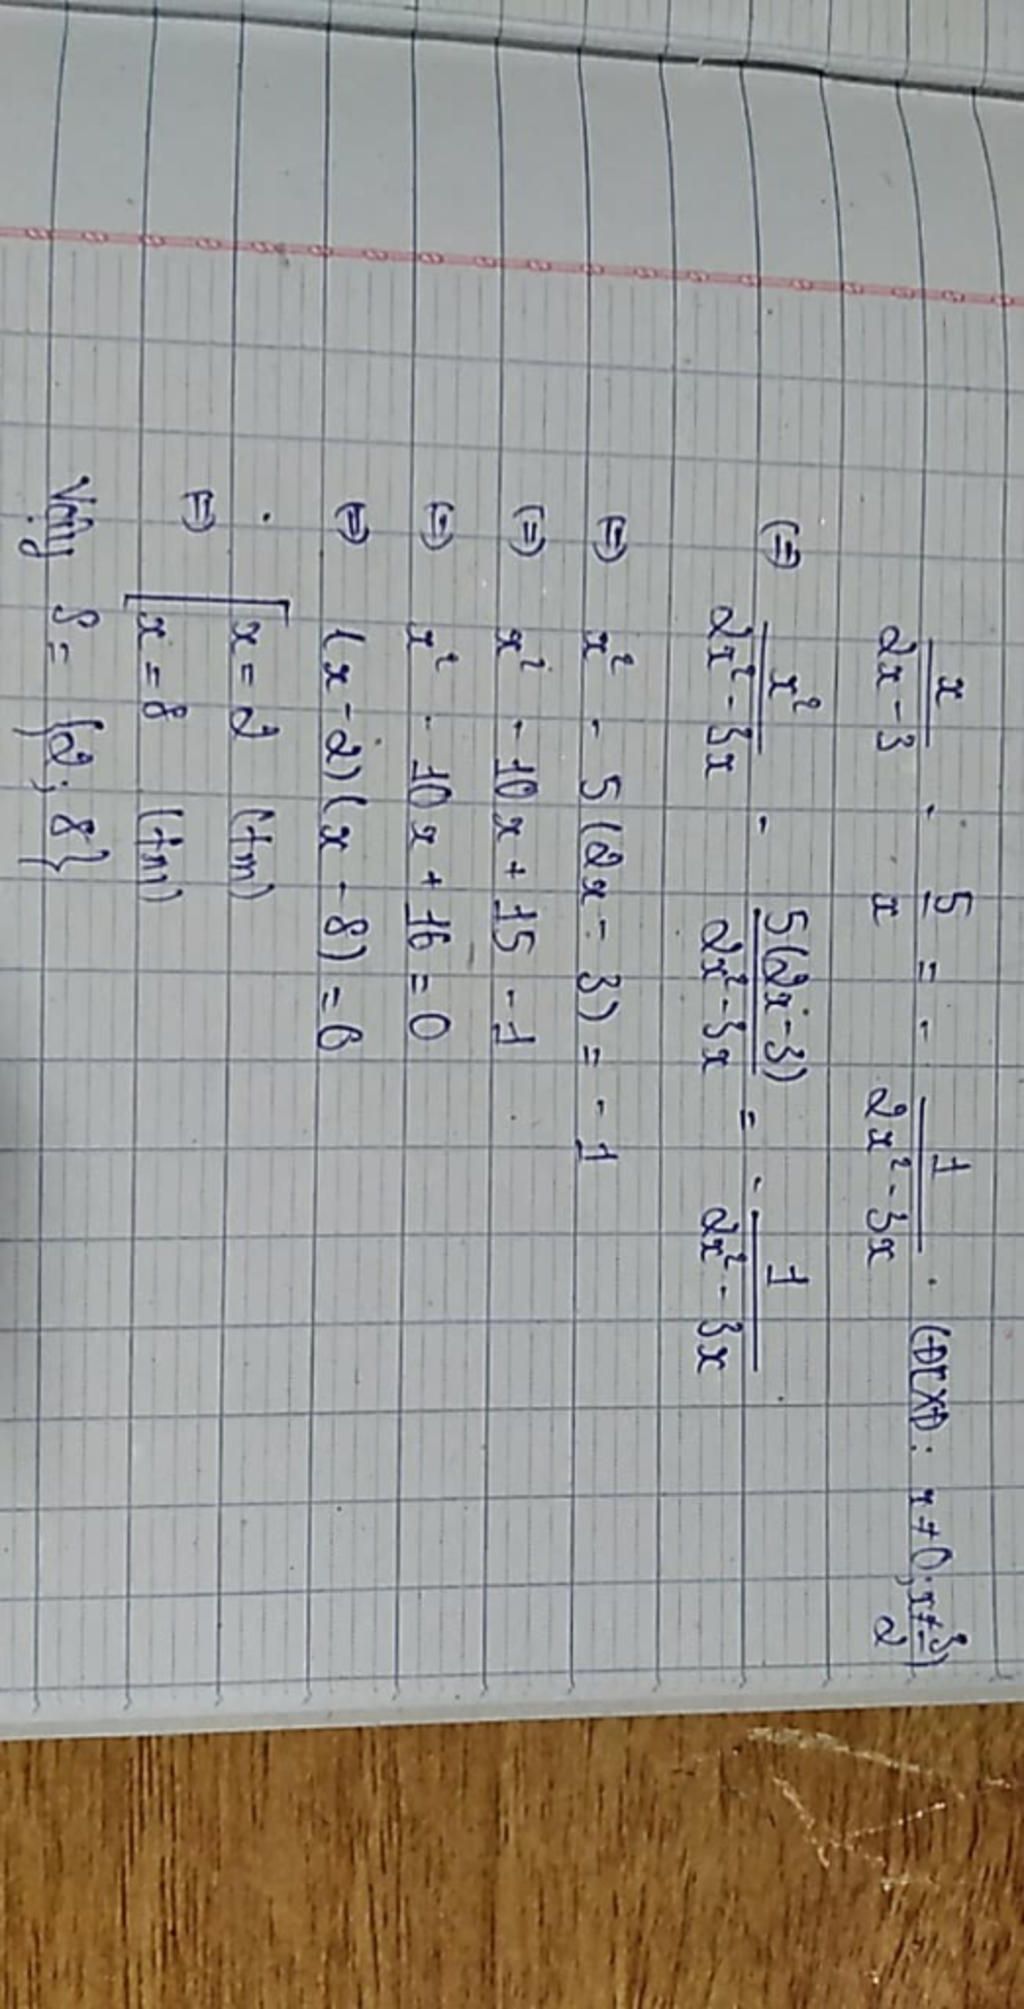 x/(2x-3) - 5/x = - 1/(2x²-3x) (ĐKXĐ: x≠0; x≠3/2)
(=) x²/(2x²-3x) - 5(2x-3)/(2x²-3x) = - 1/(2x²-3x)
(=) x² - 5(2x-3) = -1
(=) x² - 10x + 15 - 1
(=) x² - 10x + 16 = 0
(=) (x-2)(x-8) = 0
(=) [ x = 2 (tm)
x = 8 (tm)
Vậy S = {2; 8}